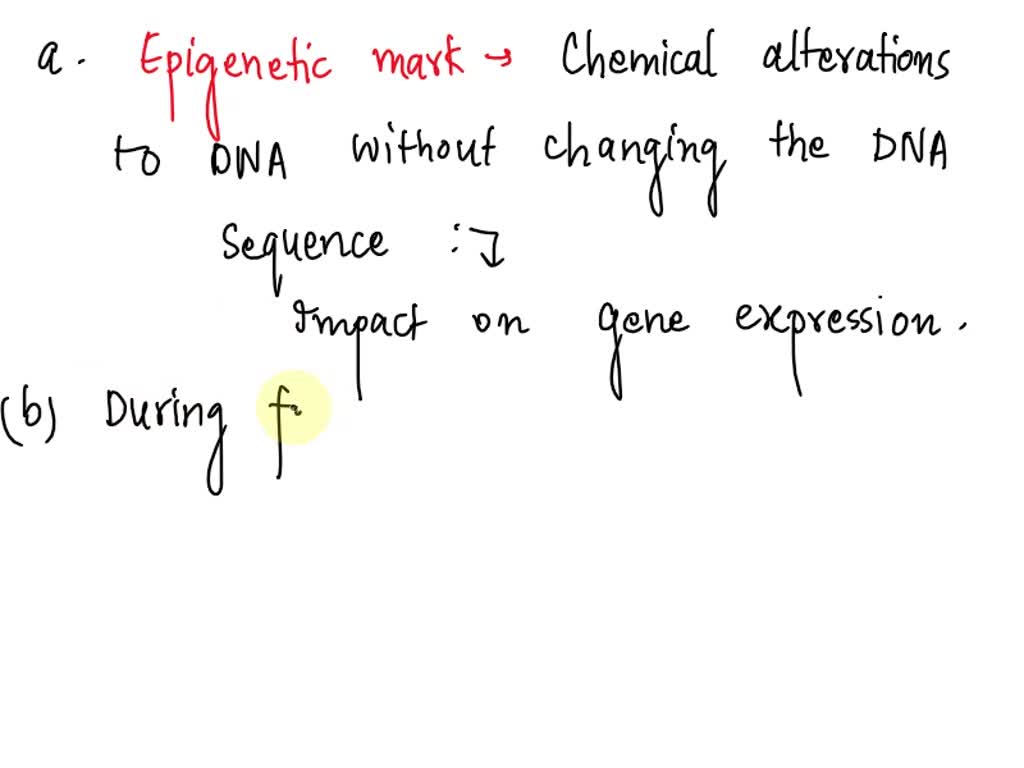 a. Epigenetic mark → Chemical alterations
to DNA without changing the DNA
Sequence :↴
Impact on gene expression.
(b) During f